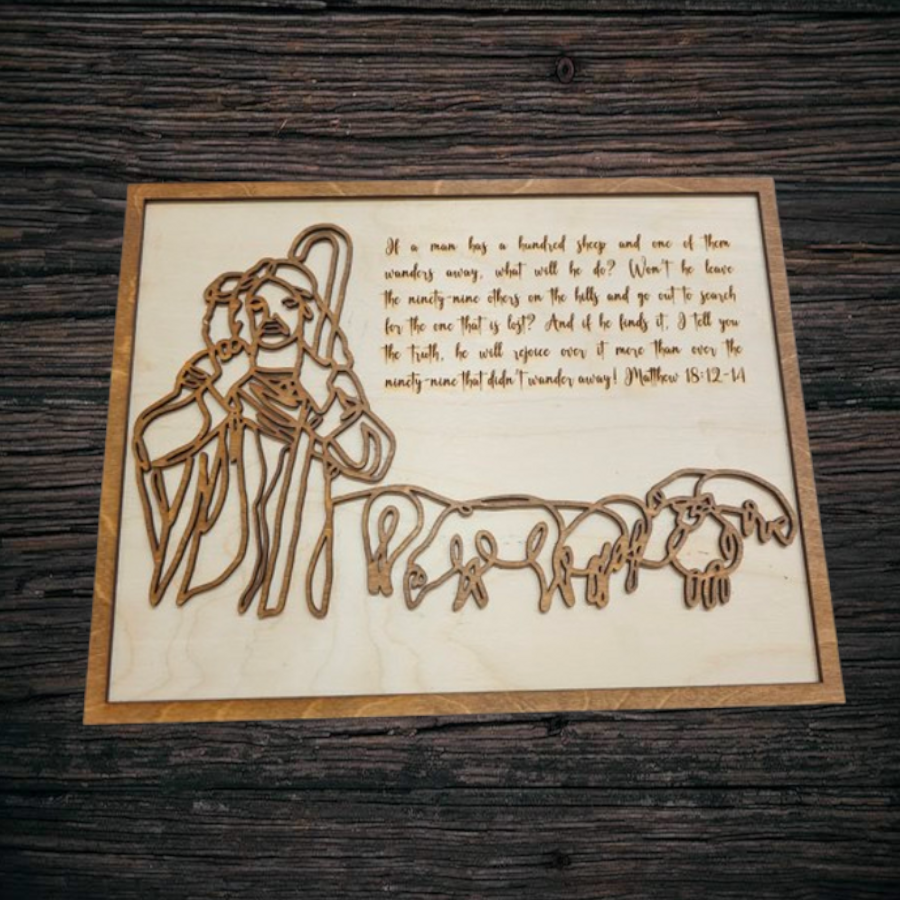 If a man has a hundred sheep and one of them
wanders away, what will he do? Won't he leave
the ninety-nine others on the hills and go out to search
for the one that is lost? And if he finds it, I tell you
the truth, he will rejoice over it more than over the
ninety-nine that didn't wander away! Matthew 18:12-14